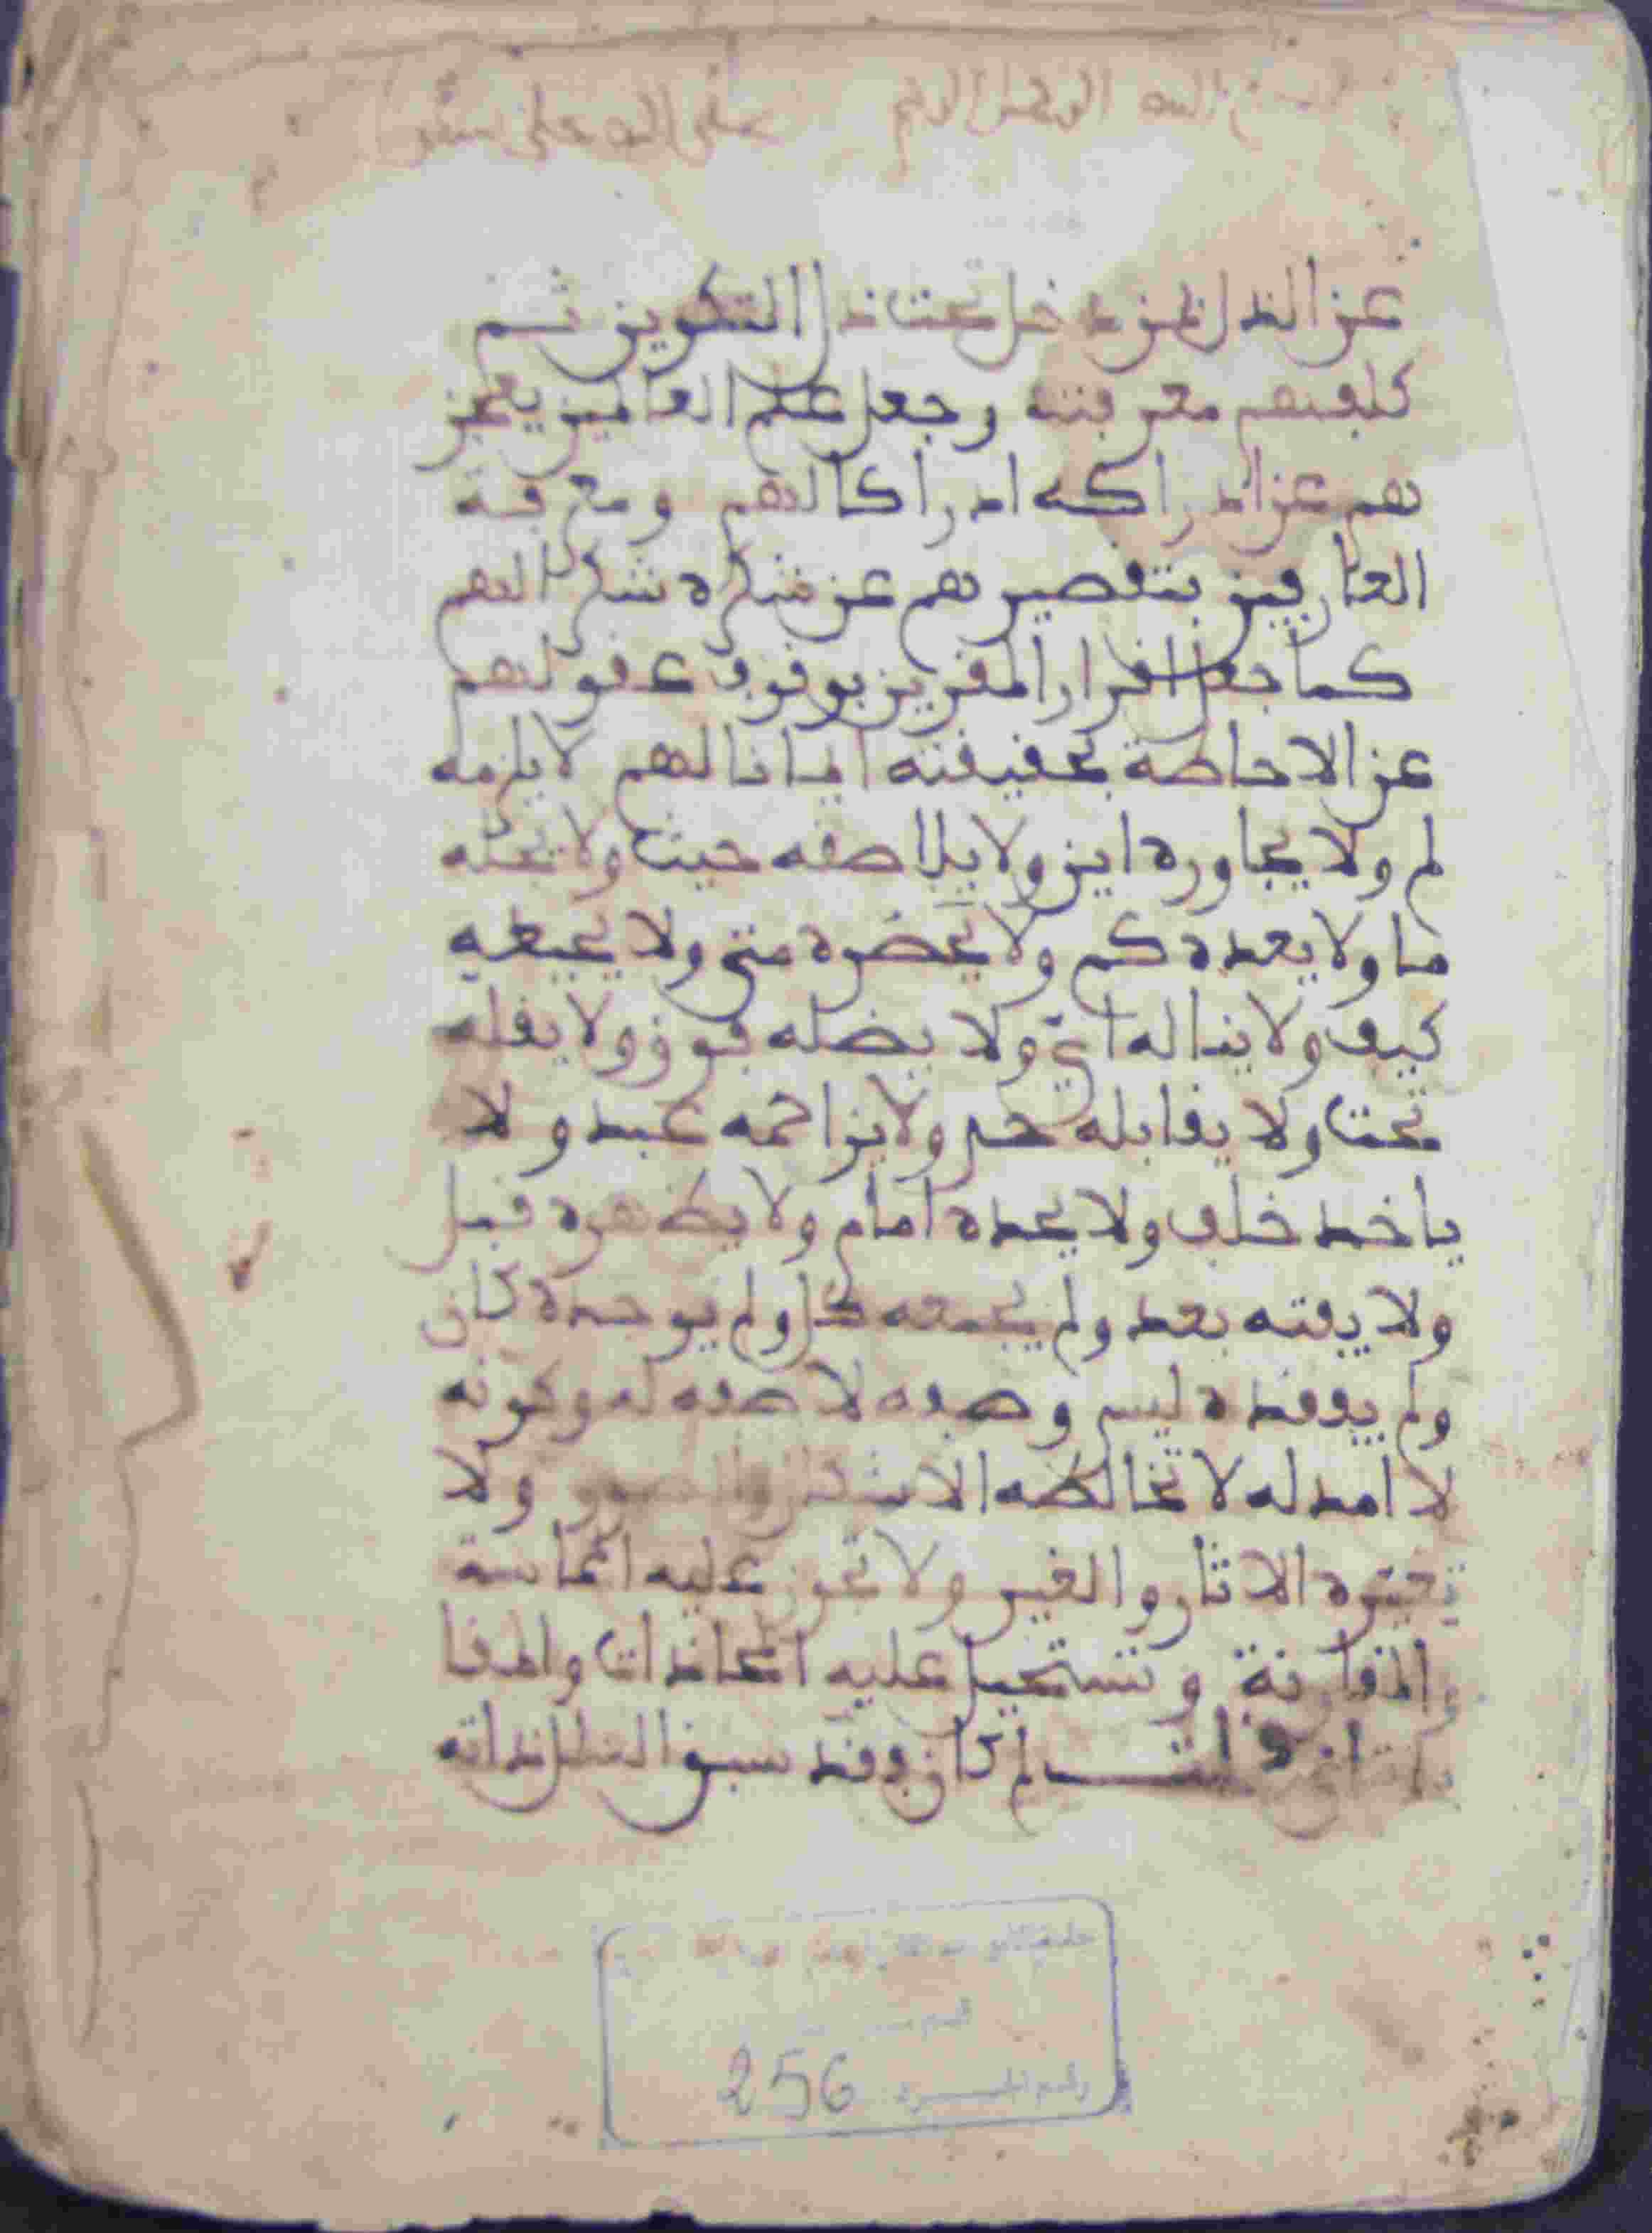 عن الذل من دخل تحت ذل التكوين ثم
كلفهم معرفته وجعل علم العالمين بعجز
هم عن ادراكه ادراكا لهم ومعرفة
العارفين بتقصيرهم عن شكره شكرا لهم
كما جعل اقرار المقرين بوقوف عقولهم
عن الاحاطة بحقيقته ايمانا لهم لا يلزمه
لم ولا يجاوره اين ولا يلاصقه حيث ولا تحله
ما ولا يعده كم ولا يحضره متى ولا يحيط به
كيف ولا يناله اي ولا يضله فوق ولا يقله
تحت ولا يقابله حد ولا يزاحمه عند ولا
ياخذ خلف ولا يحده امام ولا يظهره قبل
ولا يفته بعد ولم يجمعه كل ولم يوجده كان
ولم يفقده ليس وصفه لا صفة له وكونه
لا امد له لا تخالطه الاشكال والصور ولا
تغيره الاثار والغير ولا تجوز عليه المماسة
والمقارنة وتستحيل عليه المحاذات والمقا
لم كان وقد سبق العلل ذاته
256